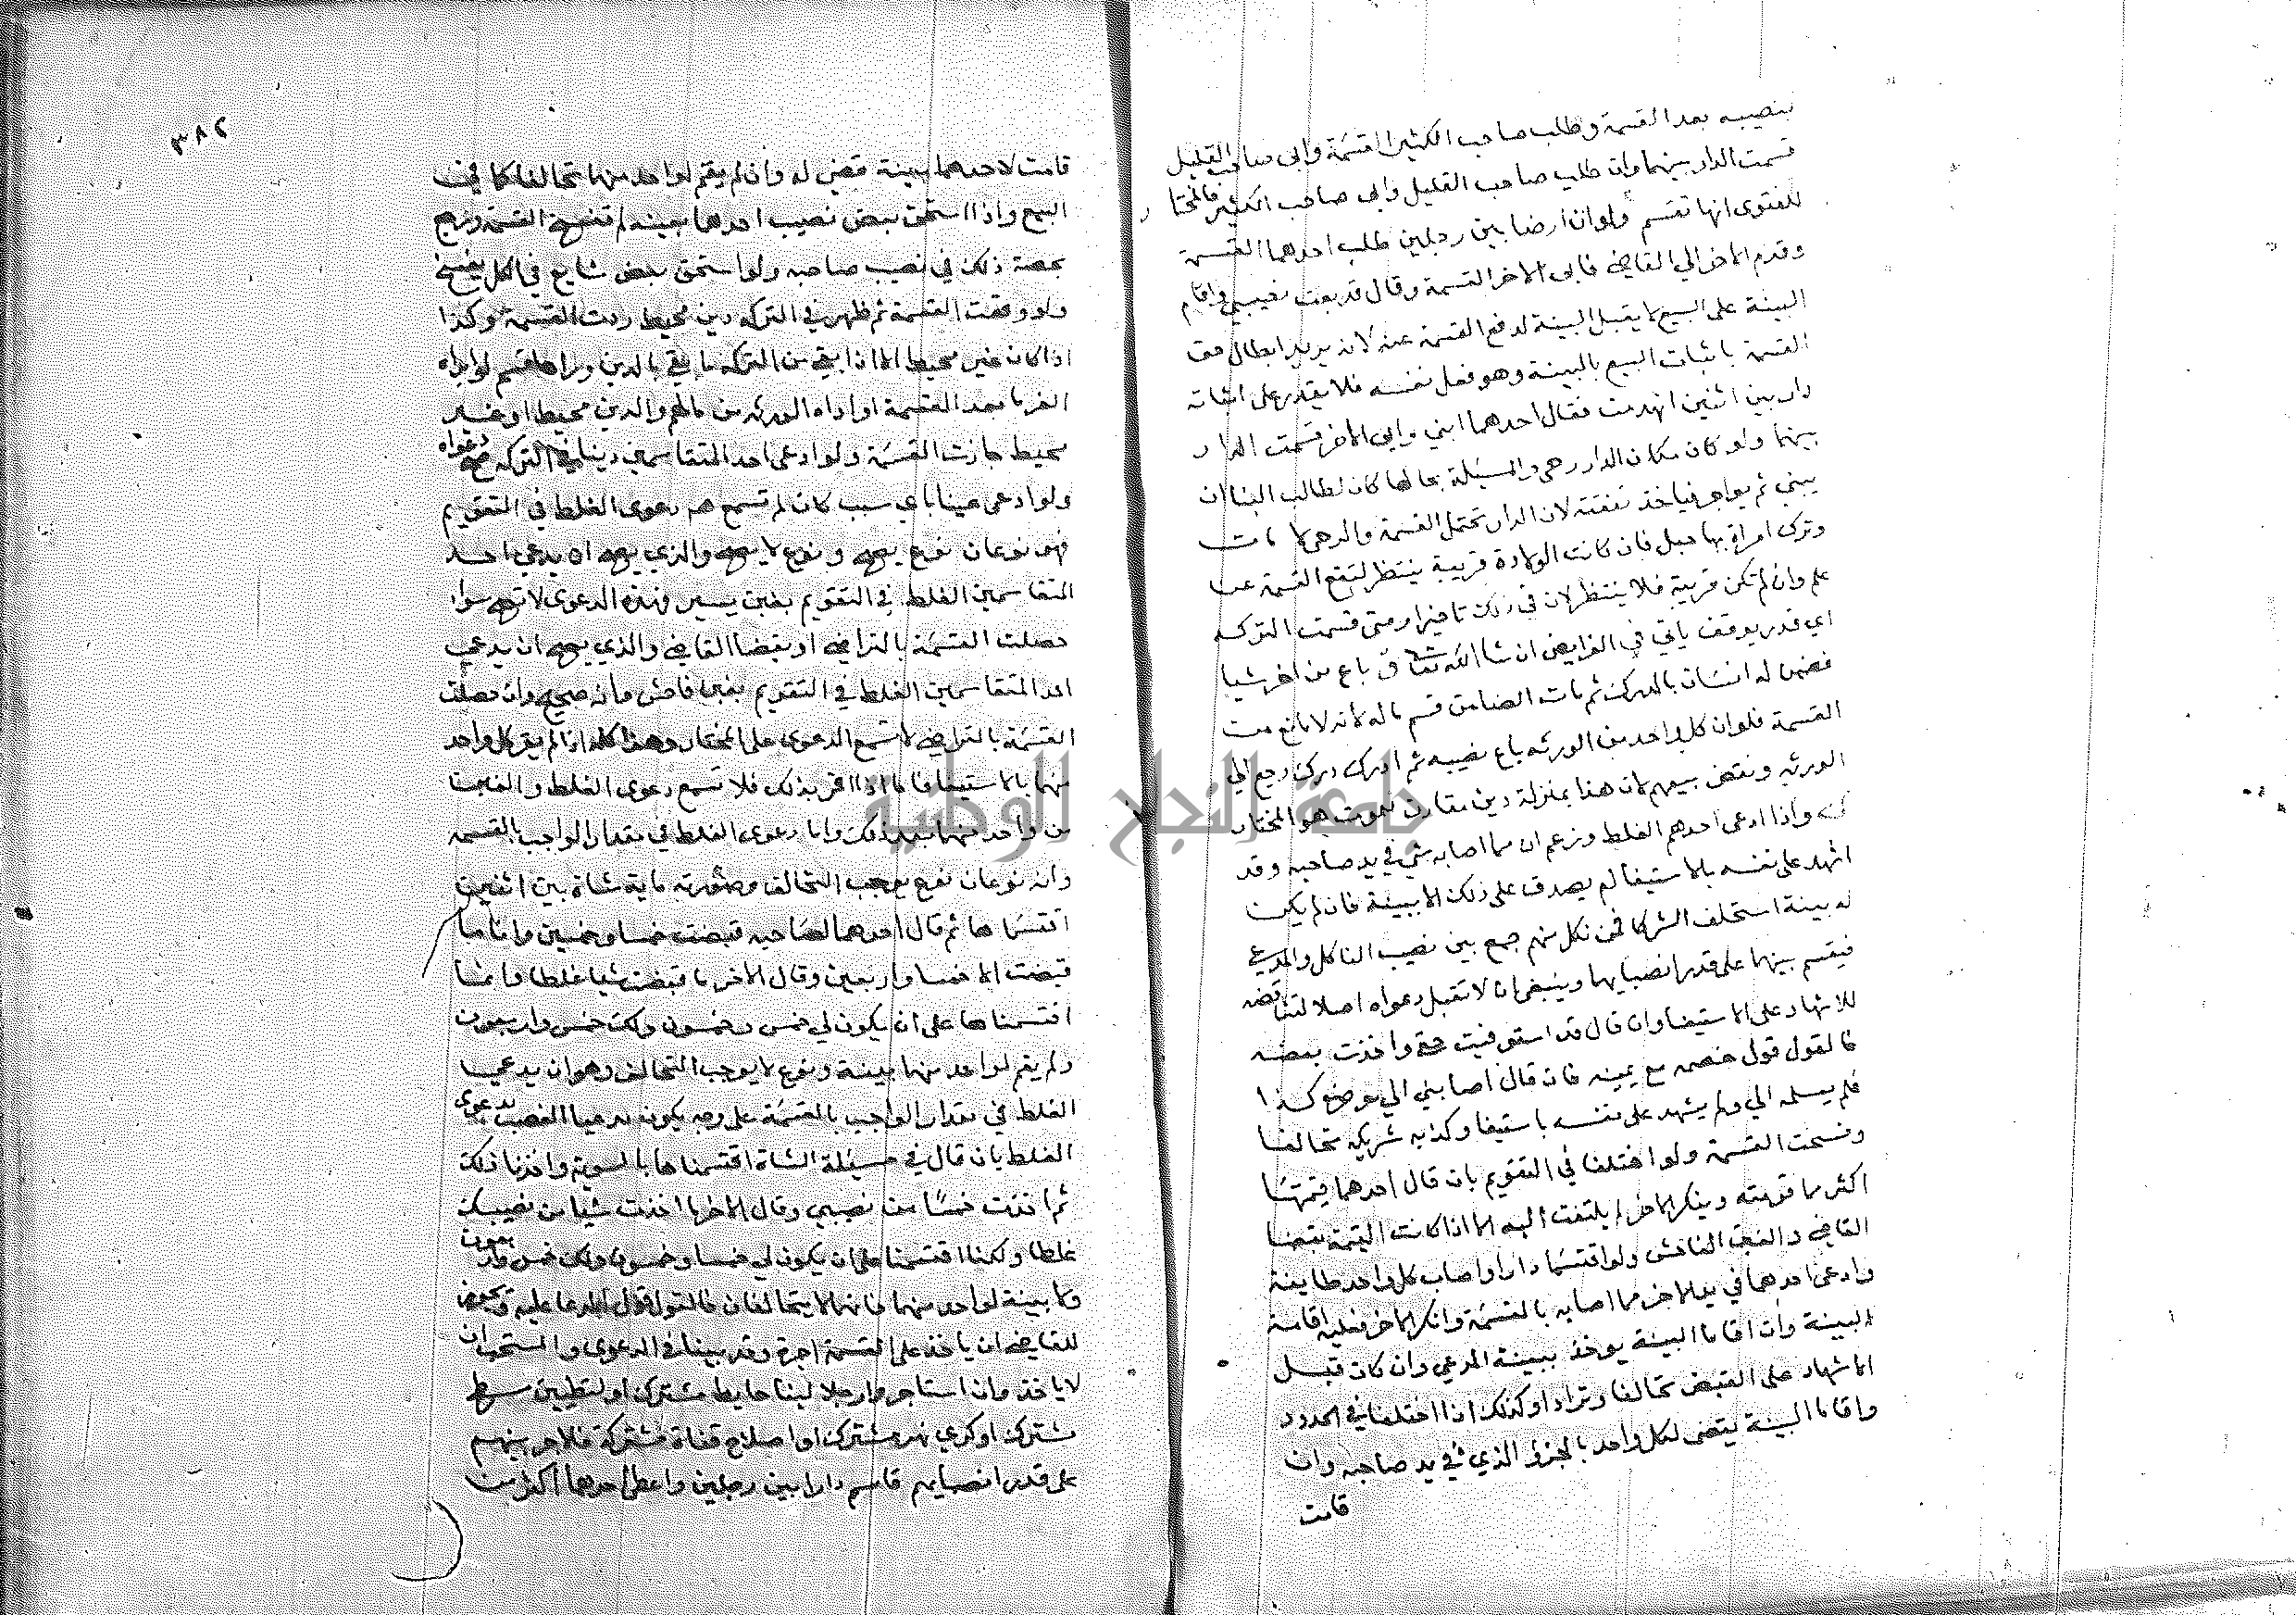 بنصيبه بعد القسمة وطلب صاحب الكثير القسمة وابى صاحب القليل
قسمت الدار بينهما وان طلب صاحب القليل وابى صاحب الكثير فالمختار
للفتوى انها تقسم ولو ان ارضا بين رجلين طلب احدهما القسمة
وقدم الاخر الي القاضي فابى الاخر القسمة وقال قد بعت نصيبي واقام
البينة على البيع لا يقبل البينة لدفع القسمة عنه لانه يريد ابطال حق
القسمة باثبات البيع بالبينة وهو فعل نفسه فلا يقدر على اثباته
دار بين اثنين انهدمت فقال احدهما ابني وابى الاخر قسمت الدار
بينهما ولو كان مكان الدار رحى والمسئلة بحالها كان لطالب البنا ان
يبني ثم يواجر فياخذ نفقته لان الدار تحتمل القسمة والرحى لا مات
وترك امراة بها حبل فان كانت الولادة قريبة ينتظر لتقع القسمة عن
علم وان لم تكن قريبة فلا ينتظر لان في ذلك تاخيرا ومتى قسمت التركة
اي قدر يوقف ياتي في الفرايض ان شا الله تعالى باع من اخر شيا
فضمن له انسان بالدرك ثم مات الضامن قسم ماله لانه لا مانع من
القسمة فلو ان كل واحد من الورثه باع نصيبه ثم ادرك درك رجع الي
الورثه ونقض بيعهم لان هذا بمنزلة دين مقارن للموت هو المختار
واذا ادعى احدهم الغلط وزعم ان مما اصابه شي في يد صاحبه وقد
اشهد على نفسه بالاستيفا لم يصدق على ذلك الا ببينة فان لم يكن
له بينة استحلف الشركا فمن نكل منهم جمع بين نصيب الناكل والمدعي
فيقسم بينهما على قدر انصبايهما وينبغي ان لا تقبل دعواه اصلا لتناقضه
للاشهاد على الاستيفا وان قال قد استوفيت حقي واخذت بعضه
فالقول قول خصمه مع يمينه فان قال اصابني الي موضع كذا
فلم يسلمه الي ولم يشهد على نفسه باستيفا وكذبه شريكه تحالفا
وفسخت القسمة ولو اختلفا في التقويم بان قال احدهما قيمتها
اكثر مما قومته وينكر الاخر لم يلتفت اليه الا اذا كانت القيمة بقضا
القاضي والغبن الفاحش ولو اقتسما دارا واصاب كل واحد طايفة
وادعى احدهما في يد الاخر مما اصابه بالقسمة وانكر الاخر فعليه اقامة
البينة وان اقاما البينة يوخذ ببينة المدعي وان كان قبل
الاشهاد على القبض تحالفا وترادا وكذلك اذا اختلفا في الحدود
واقاما البينة يقضى لكل واحد بالجزو الذي في يد صاحبه وان
قامت
٣٨٢
قامت لاحدهما بينة قضي له وان لم يقم لواحد منهما تحالفا كما في
البيع واذا استحق بعض نصيب احدهما بعينه لم تفسخ القسمة ورجع
بحصة ذلك في نصيب صاحبه ولو استحق بعض شايع في الكل يفسخ
ولو وقعت القسمة ثم ظهر في التركه دين محيط ردت القسمة وكذا
اذا كان غير محيط الا اذا بقي من التركه ما يفي بالدين ورا ما قسم لو ابراه
الغرما بعد القسمة او اداه الورثه من مالهم والدين محيط او غير
محيط جازت القسمة ولو ادعى احد المتقاسمين دينا في التركه صح دعواه
ولو ادعى عينا باي سبب كان لم تسمع دعوى الغلط في التقويم
فهو نوعان نوع يصح ونوع لا يصح والذي يصح ان يدعي احد
المتقاسمين الغلط في التقويم بغبن يسير فهذه الدعوى لا تصح سوا
حصلت القسمة بالتراضي او بقضا القاضي والذي يصح ان يدعي
احد المتقاسمين الغلط في التقويم بغبن فاحش فانه صحيح وان حصلت
القسمة بالتراضي لا تسمع الدعوى على المختار وهذا كله اذا لم يقر كل واحد
منهما بالاستيفا فاما اذا اقر بذلك فلا تسمع دعوى الغلط والغبن
من واحد منهما بعد ذلك واما دعوى الغلط في مقدار الواجب بالقسمه
وانه نوعان نوع يوجب التحالف وصورته ماية شاة بين اثنين
اقتسماها ثم قال احدهما لصاحبه قبضت خمسا وخمسين وانا ما
قبضت الا خمسا واربعين وقال الاخر ما قبضت شيا غلطا وانما
اقتسمناها على ان يكون لي خمس وخمسون ولك خمس واربعون
ولم يقم لواحد منهما بينة ونوع لا يوجب التحالف وهو ان يدعي
الغلط في مقدار الواجب بالقسمة على وجه يكون مدعيا الغصب بدعوى
الغلط بان قال في مسئلة الشاة اقتسمناها بالسوية واخذنا ذلك
ثم اخذت خمسا من نصيبي وقال الاخر ما اخذت شيا من نصيبك
غلطا ولكنا اقتسمنا على ان يكون لي خمسا وخمسون ولك خمس واربعون
ولا بينة لواحد منهما فانهما لا يتحالفان فالقول قول المدعا عليه ويجوز
للقاضي ان ياخذ على القسمة اجرة وقد بينا في الدعوى والمستحب ان
لا ياخذ فان استاجروا رجلا لبنا حايط مشترك او لتطيين سطح
مشترك او كري نهر مشترك او اصلاح قناة مشتركة فالاجر بينهم
على قدر انصبايهم قاسم دارا بين رجلين واعطى احدهما اكثر من
جامعة النجاح الوطنية